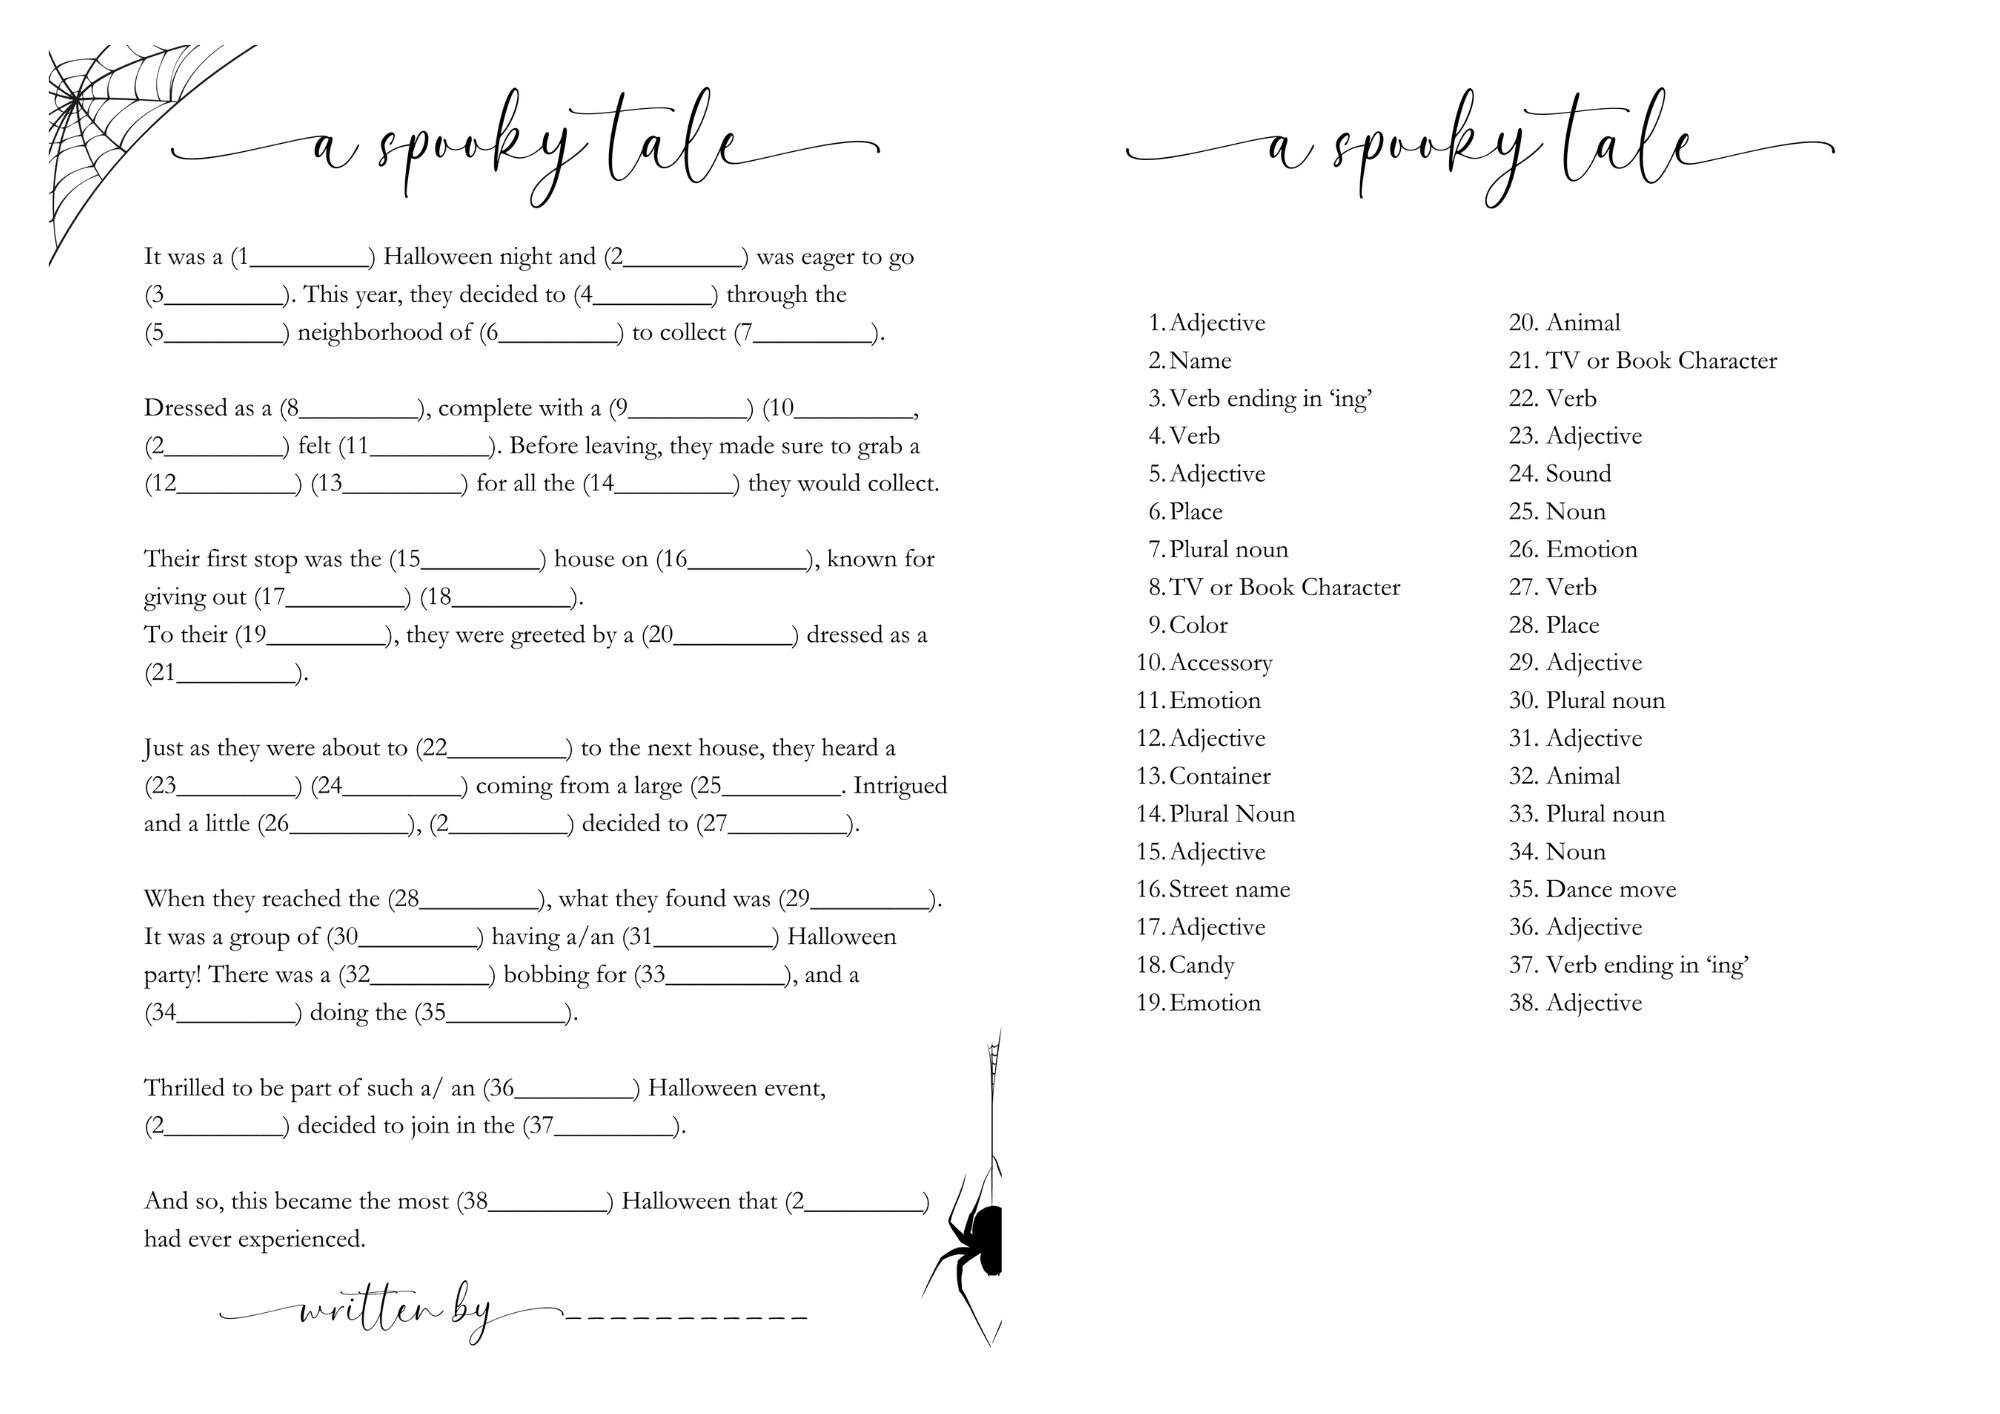 a spooky tale
It was a (1_________) Halloween night and (2_________) was eager to go
(3_________). This year, they decided to (4_________) through the
(5_________) neighborhood of (6_________) to collect (7_________).
Dressed as a (8_________), complete with a (9_________) (10_________,
(2_________) felt (11_________). Before leaving, they made sure to grab a
(12_________) (13_________) for all the (14_________) they would collect.
Their first stop was the (15_________) house on (16_________), known for
giving out (17_________) (18_________).
To their (19_________), they were greeted by a (20_________) dressed as a
(21_________).
Just as they were about to (22_________) to the next house, they heard a
(23_________) (24_________) coming from a large (25_________. Intrigued
and a little (26_________), (2_________) decided to (27_________).
When they reached the (28_________), what they found was (29_________).
It was a group of (30_________) having a/an (31_________) Halloween
party! There was a (32_________) bobbing for (33_________), and a
(34_________) doing the (35_________).
Thrilled to be part of such a/ an (36_________) Halloween event,
(2_________) decided to join in the (37_________).
And so, this became the most (38_________) Halloween that (2_________)
had ever experienced.
written by ___________
a spooky tale
1. Adjective
2. Name
3. Verb ending in ‘ing’
4. Verb
5. Adjective
6. Place
7. Plural noun
8. TV or Book Character
9. Color
10. Accessory
11. Emotion
12. Adjective
13. Container
14. Plural Noun
15. Adjective
16. Street name
17. Adjective
18. Candy
19. Emotion
20. Animal
21. TV or Book Character
22. Verb
23. Adjective
24. Sound
25. Noun
26. Emotion
27. Verb
28. Place
29. Adjective
30. Plural noun
31. Adjective
32. Animal
33. Plural noun
34. Noun
35. Dance move
36. Adjective
37. Verb ending in ‘ing’
38. Adjective